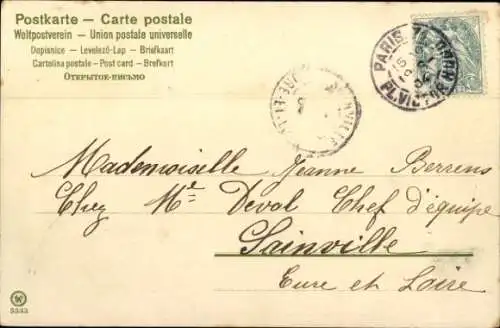 Postkarte — Carte postale
Weltpostverein — Union postale universelle
Dopisnice — Levelező-Lap — Briefkaart
Cartolina postale — Post card — Brefkort
Открытое-письмо
PARIS
PL. VICTOR
Mademoiselle Jeanne Berrens
Chez Me Deval Chef d'équipe
Sainville
Eure et Loire